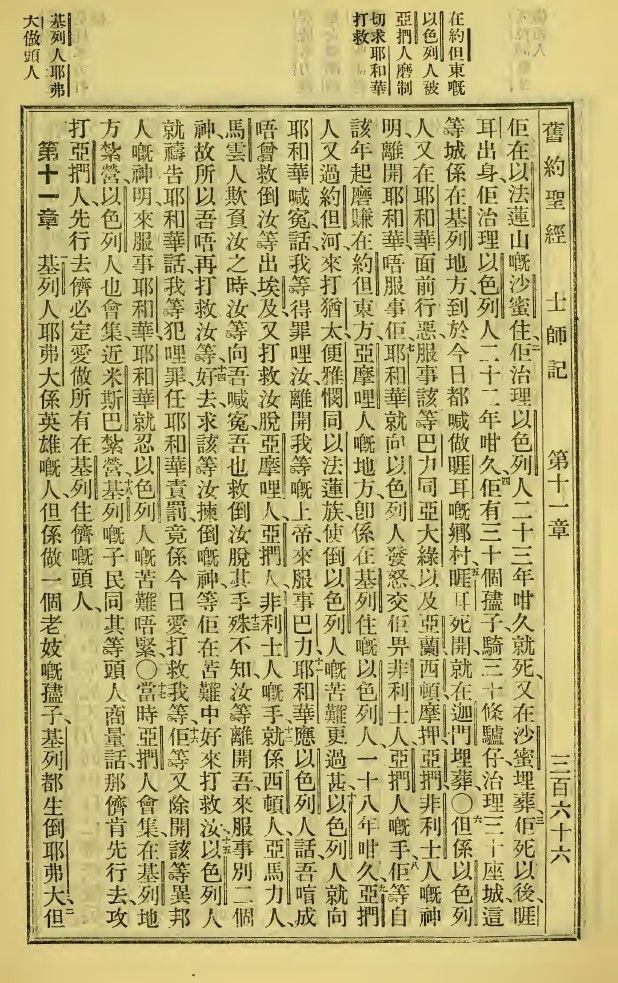 舊約聖經　士師記　第十一章　三百六十六
在約但東嘅
以色列人被
亞捫人磨制
切求耶和華
打救
基列人耶弗
大做頭人
佢在以法蓮山嘅沙蜜住、二佢治理以色列人二十三年咁久就死、又在沙蜜埋葬、三佢死以後、睚
耳出身、佢治理以色列人二十二年咁久、四佢有三十個孻子騎三十條驢仔治理三十座城、這
等城係在基列地方到於今日都喊做睚耳嘅鄉村、五睚耳死開就在迦門埋葬〇六但係以色列
人又在耶和華面前行惡、服事該等巴力同亞大綠以及亞蘭西頓摩押亞捫非利士人嘅神
明、離開耶和華唔服事佢、七耶和華就向以色列人發怒交佢畀非利士人、亞捫人嘅手、八佢等自
該年起磨賺在約但東方亞摩哩人嘅地方卽係在基列住嘅以色列人一十八年咁久、九亞捫
人又過約但河來打猶太便雅憫同以法蓮族、使倒以色列人嘅苦難更過甚、十以色列人就向
耶和華喊冤話、我等得罪哩汝、離開我等嘅上帝、來服事巴力、十一耶和華應以色列人話、吾喑成
唔曾救倒汝等出埃及、又打救汝脫亞摩哩人、亞捫人、非利士人嘅手、十二就係西頓人、亞馬力人、
馬雲人欺負汝之時、汝等向吾喊冤、吾也救倒汝脫其手、十三殊不知汝等離開吾來服事別二個
神、故所以吾唔再打救汝等、十四好去求該等汝揀倒嘅神等佢在苦難中好來打救汝、十五以色列人
就禱告耶和華話、我等犯哩罪任耶和華責罰、竟係今日愛打救我等、十六佢等又除開該等異邦
人嘅神明來服事耶和華、耶和華就忍以色列人嘅苦難唔緊〇十七當時亞捫人會集在基列地
方紮營、以色列人也會集近米斯巴紮營、十八基列嘅子民同其等頭人商量話、那儕肯先行去攻
打亞捫人、先行去儕必定愛做所有在基列住儕嘅頭人、
第十一章　一基列人耶弗大係英雄嘅人、但係做一個老妓嘅孻子、基列都生倒耶弗大、二但